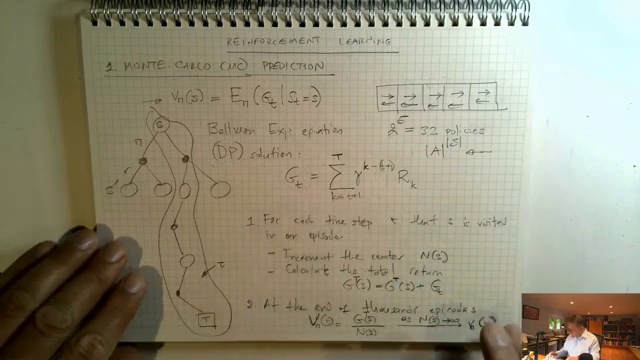 REINFORCEMENT LEARNING
1. MONTE-CARLO (MC) PREDICTION
→ V_π(s) = E_π(G_t | S_t = s)
Bellman Exp. equation
(DP) solution:
2^5 = 32 policies
|A|^|S| ←
G_t = Σ_{k=t+1}^{T} γ^{k-(t+1)} R_k
S
π
r
s'
τ
T
1. For each time step t that s is visited
in an episode
- Increment the counter N(s)
- Calculate the total return
G^T(s) = G^T(s) + G_t
2. At the end of thousands episodes
V_π(s) = G(s)/N(s) as N(s) →